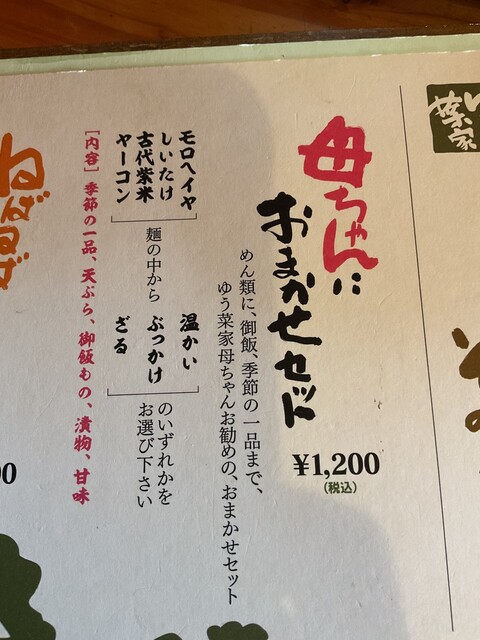 菜家
母ちゃんに
おまかせセット
¥1,200
(税込)
めん類に、御飯、季節の一品まで、
ゆう菜家母ちゃんお勧めの、おまかせセット
モロヘイヤ
しいたけ
古代紫米
ヤーコン
麺の中から
温かい
ぶっかけ
ざる
のいずれかを
お選び下さい
[内容] 季節の一品、天ぷら、御飯もの、漬物、甘味
ねばるぞ